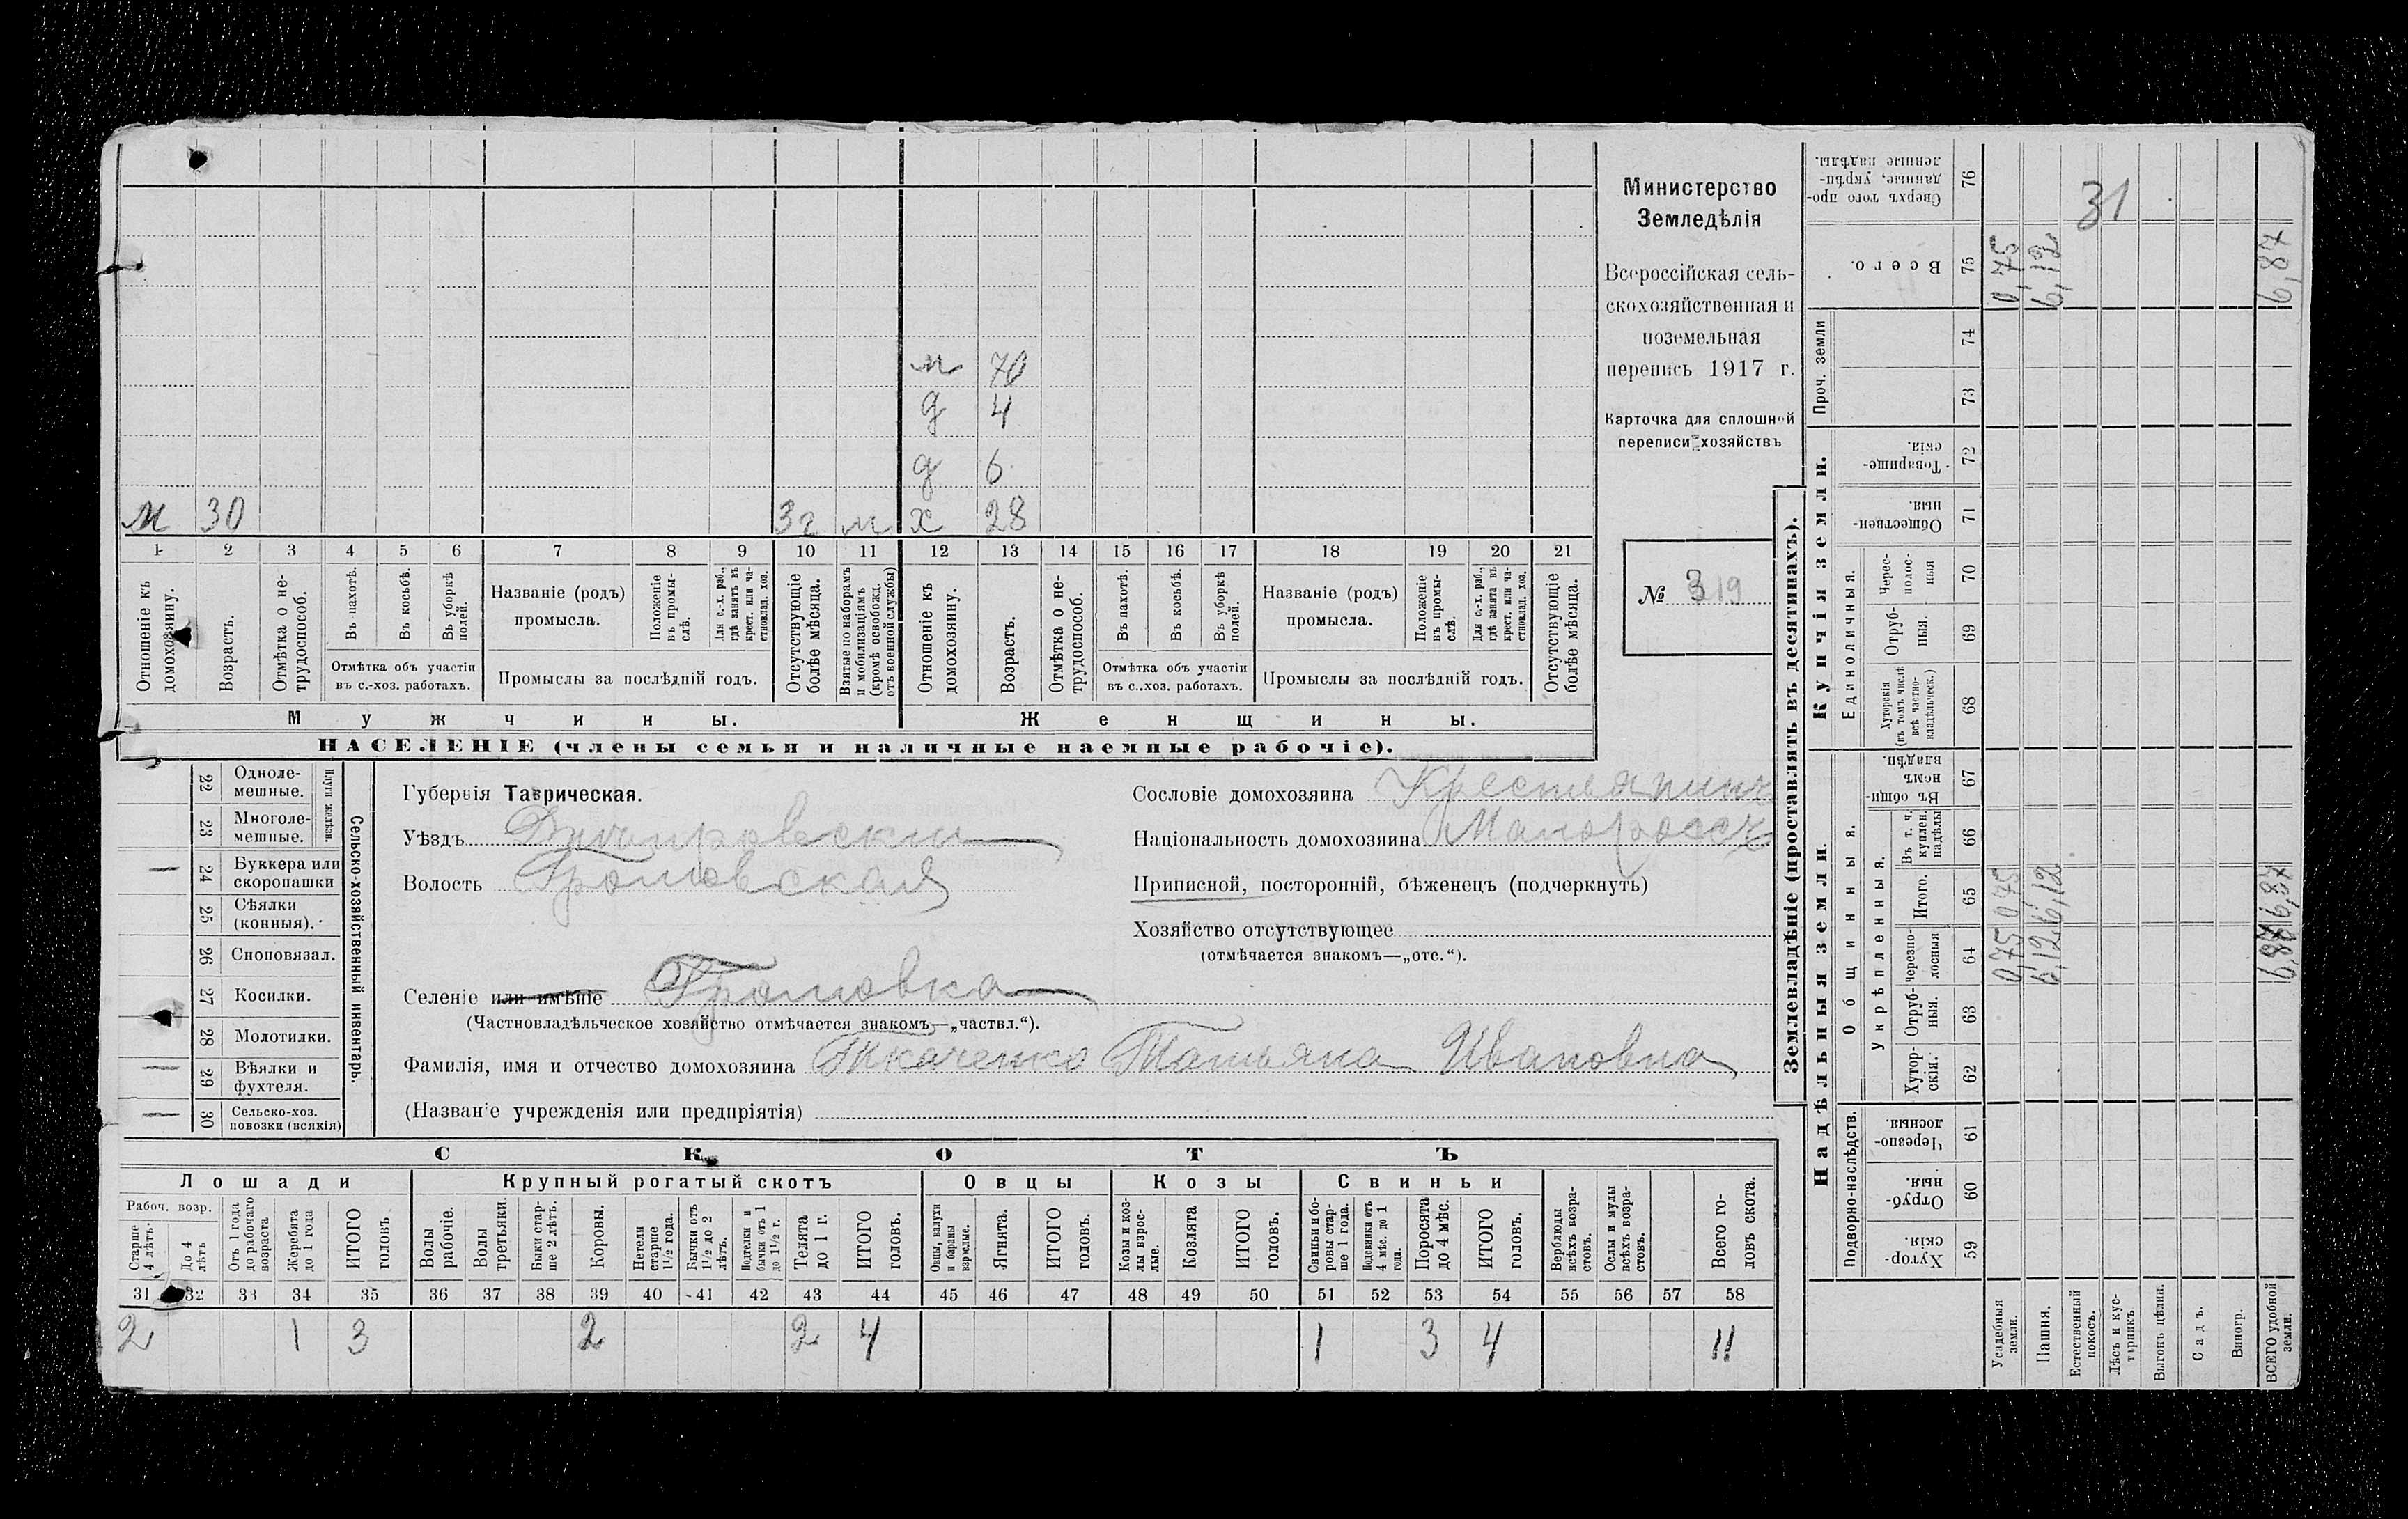 м 70
д 4
д 6
м 30 3г м х 28
1 2 3 4 5 6 7 8 9 10 11 12 13 14 15 16 17 18 19 20 21
Отношеніе къ домохозяину.
Возрастъ.
Отмѣтка о не-
трудоспособ.
Въ пахотѣ.
Въ косьбѣ.
Въ уборкѣ
полей.
Отмѣтка объ участіи
въ с.-хоз. работахъ.
Названіе (родъ)
промысла.
Положеніе
въ промы-
слѣ.
Для с.-х. раб.,
гдѣ занятъ въ
крест. или ча-
стновлад. хоз.
Промыслы за послѣдній годъ.
Отсутствующіе
болѣе мѣсяца.
Взятые по наборамъ
и мобилизаціямъ
(кромѣ освобожд.
отъ военной службы)
Отношеніе къ
домохозяину.
Возрастъ.
Отмѣтка о не-
трудоспособ.
Въ пахотѣ.
Въ косьбѣ.
Въ уборкѣ
полей.
Отмѣтка объ участіи
въ с.-хоз. работахъ.
Названіе (родъ)
промысла.
Положеніе
въ промы-
слѣ.
Для с.-х. раб.,
гдѣ занята въ
крест. или ча-
стновлад. хоз.
Промыслы за послѣдній годъ.
Отсутствующіе
болѣе мѣсяца.
Мужчины. Женщины.
НАСЕЛЕНІЕ (члены семьи и наличные наемные рабочіе).
Министерство
Земледѣлія
Всероссійская сель-
скохозяйственная и
поземельная
перепись 1917 г.
Карточка для сплошной
переписи хозяйствъ
№ 319
22 Одноле-
мешные.
23 Многоле-
мешные.
Плуги желѣзн.
24 Буккера или
скоропашки
25 Сѣялки
(конныя).
26 Сноповязал.
27 Косилки.
28 Молотилки.
29 Вѣялки и
фухтеля.
30 Сельско-хоз.
повозки (всякія)
Сельско-хозяйственный инвентарь.
Губернія Таврическая.
Уѣздъ Днѣпровскій
Волость Громовская
Селеніе или имѣніе Громовка
(Частновладѣльческое хозяйство отмѣчается знакомъ—„частвл.“).
Фамилія, имя и отчество домохозяина Ткаченко Татьяна Ивановна
(Названіе учрежденія или предпріятія)
Сословіе домохозяина Крестьянинъ
Національность домохозяина Малороссъ
Приписной, посторонній, бѣженецъ (подчеркнуть)
Хозяйство отсутствующее
(отмѣчается знакомъ—„отс.“).
СКОТЪ
Лошади Крупный рогатый скотъ Овцы Козы Свиньи
Рабоч. возр.
Старше
4 лѣтъ.
До 4
лѣтъ
Отъ 1 года
до рабочаго
возраста
Жеребята
до 1 года
ИТОГО
головъ.
Волы
рабочіе.
Волы
третьяки.
Быки стар-
ше 2 лѣтъ.
Коровы.
Нетели
старше
1½ года.
Бычки отъ
1½ до 2
лѣтъ.
Подтелки и
бычки отъ 1
до 1½ г.
Телята
до 1 г.
ИТОГО
головъ.
Овцы, валухи
и бараны
взрослые.
Ягнята.
ИТОГО
головъ.
Козы и коз-
лы взрос-
лые.
Козлята
ИТОГО
головъ.
Свиньи и бо-
ровы стар-
ше 1 года.
Подсвинки отъ
4 мѣс. до 1
года.
Поросята
до 4 мѣс.
ИТОГО
головъ.
Верблюды
всѣхъ возра-
стовъ.
Ослы и мулы
всѣхъ возра-
стовъ.
Всего го-
ловъ скота.
31 32 33 34 35 36 37 38 39 40 41 42 43 44 45 46 47 48 49 50 51 52 53 54 55 56 57 58
2 1 3 2 2 4 1 3 4 11
Землевладѣніе (проставлять въ десятинахъ).
Надѣльныя земли.
Купчія земли.
Проч. земли
Подворно-наслѣдств.
Общинныя.
Укрѣпленныя.
Единоличныя.
76 Сверхъ того про-
данные, укрѣп-
ленные надѣлы.
31
75 Всего. 0,75 6,12 6,87
74
73
72 Товарище-
скія.
71 Обществен-
ныя.
70 Черес-
полос-
ныя
69 Отруб-
ныя.
68 Хуторскія
(въ томъ числѣ
всѣ частно-
владѣльческ.)
67 Въ общи-
номъ
владѣн.
66 Въ т. ч.
куплен.
надѣлы
65 Итого. 075 6,12 6,87
64 Черезпо-
лосныя 0,75 6,12 6,87
63 Отруб-
ныя.
62 Хутор-
скія.
61 Черезпо-
лосныя.
60 Отруб-
ныя.
59 Хутор-
скія.
Усадебныя
земли.
Пашня.
Естественный
покосъ.
Лѣсъ и кус-
тарникъ
Выгонъ цѣлин.
Садъ.
Виногр.
ВСЕГО удобной
земли.